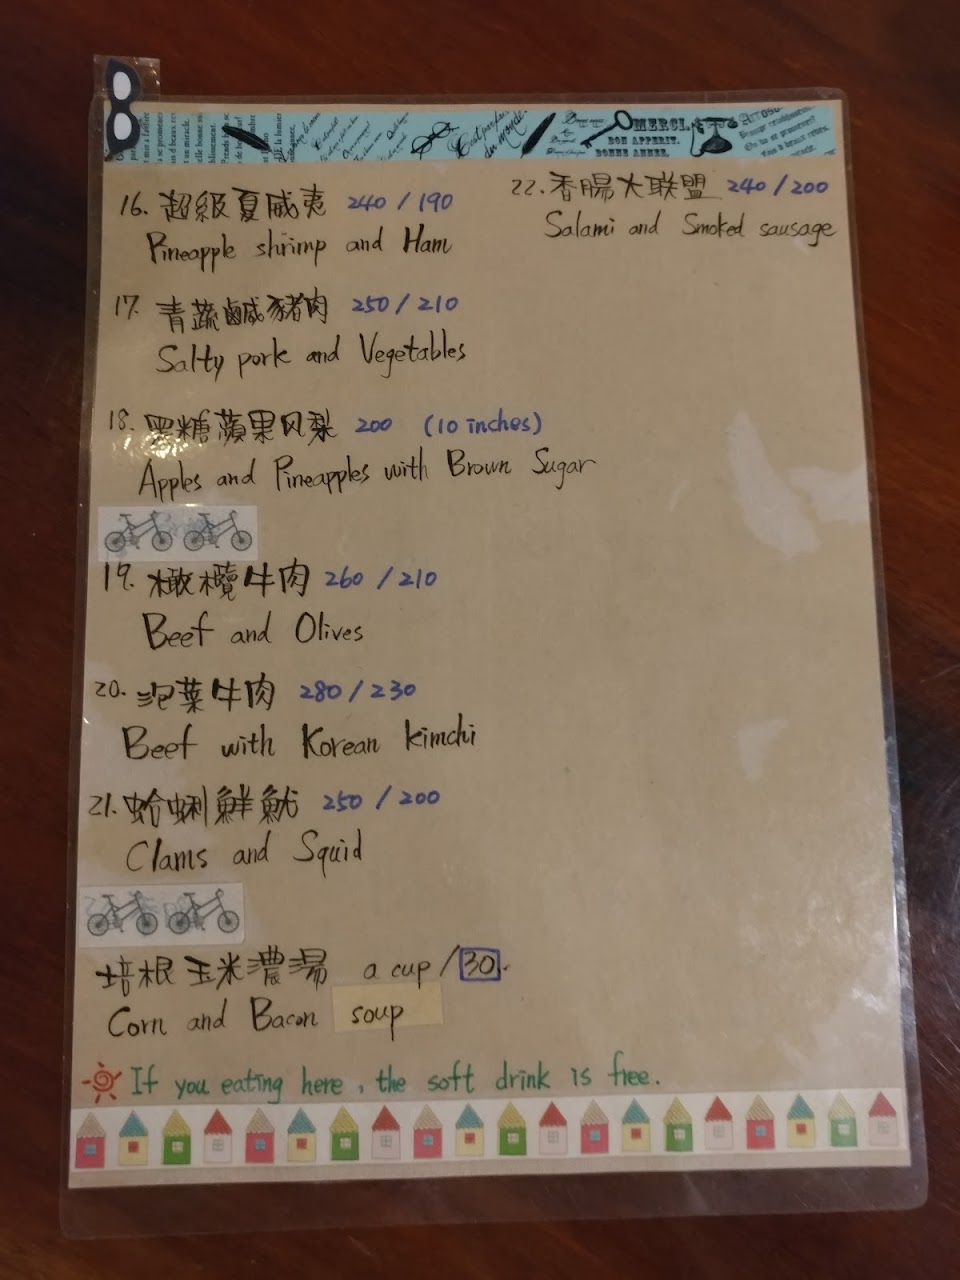 MERCI.
BON APPERIT.
BONNE ANNEE.
16. 超級夏威夷 240 / 190
Pineapple shrimp and Ham
17. 青蔬鹹豬肉 250 / 210
Salty pork and Vegetables
18. 黑糖蘋果风梨 200 (10 inches)
Apples and Pineapples with Brown Sugar
19. 橄欖牛肉 260 / 210
Beef and Olives
20. 泡菜牛肉 280 / 230
Beef with Korean kimchi
21. 蛤蜊鮮魷 250 / 200
Clams and Squid
培根玉米濃湯 a cup / 30.
Corn and Bacon soup
22. 香腸大联盟 240 / 200
Salami and Smoked sausage
If you eating here, the soft drink is free.